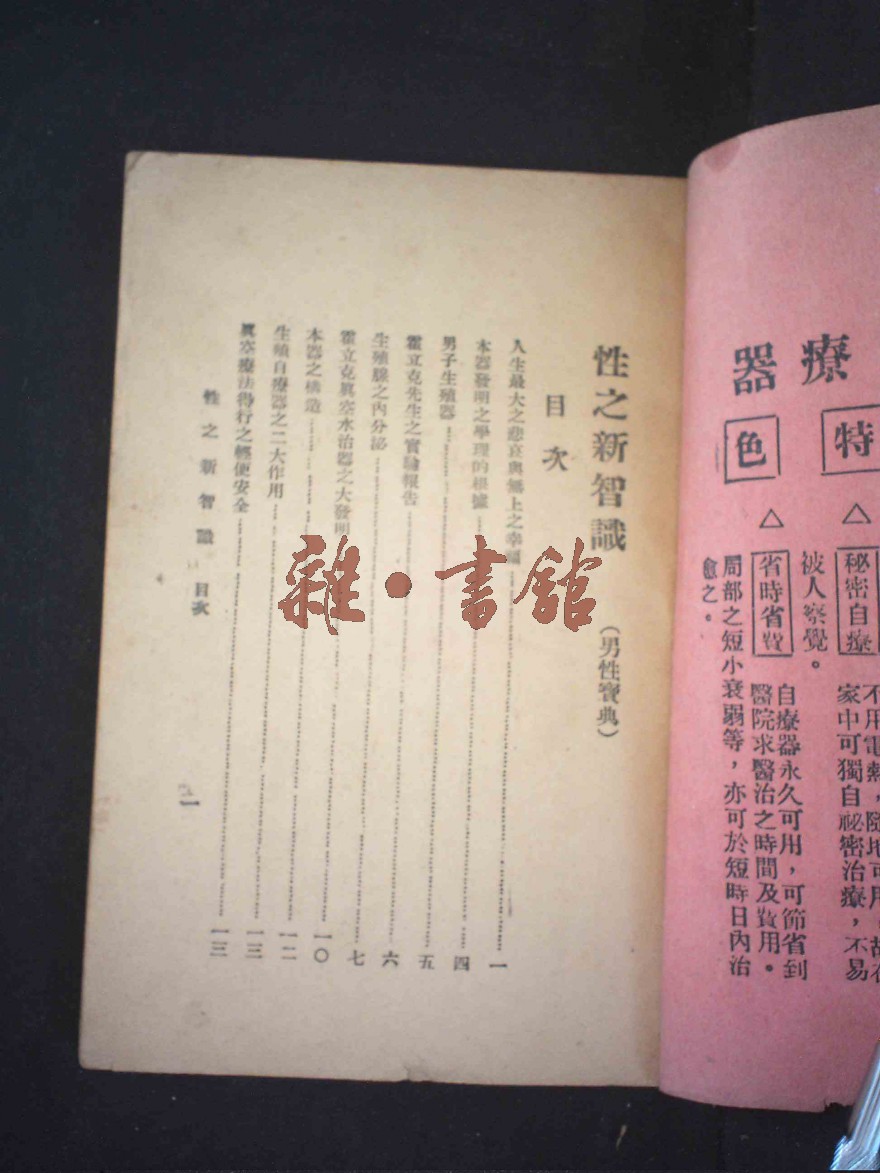 療器
特色
△秘密自療 不用電熱，隨地可用。故在
家中可獨自祕密治療，不易
被人察覺。
△省時省費 自療器永久可用，可節省到
醫院求醫治之時間及費用。
局部之短小衰弱等，亦可於短時日內治
愈之。
性之新智識 （男性寶典）
目次
人生最大之悲哀與無上之幸福……一
本器發明之學理的根據……四
男子生殖器……五
霍立克先生之實驗報告……六
生殖腺之內分泌……七
霍立克眞空水治器之大發明……一〇
本器之構造……一二
生殖自療器之二大作用……一三
眞空療法得行之輕便安全……一三
性之新智識 目次
一
雜·書館